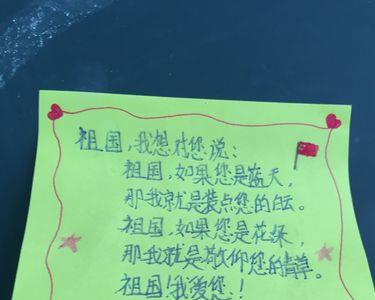 祖国,我想对您说:
祖国,如果您是蓝天,
那我就是装点您的白云。
祖国,如果您是花朵,
那我就是敬仰您的青草。
祖国!我爱您!